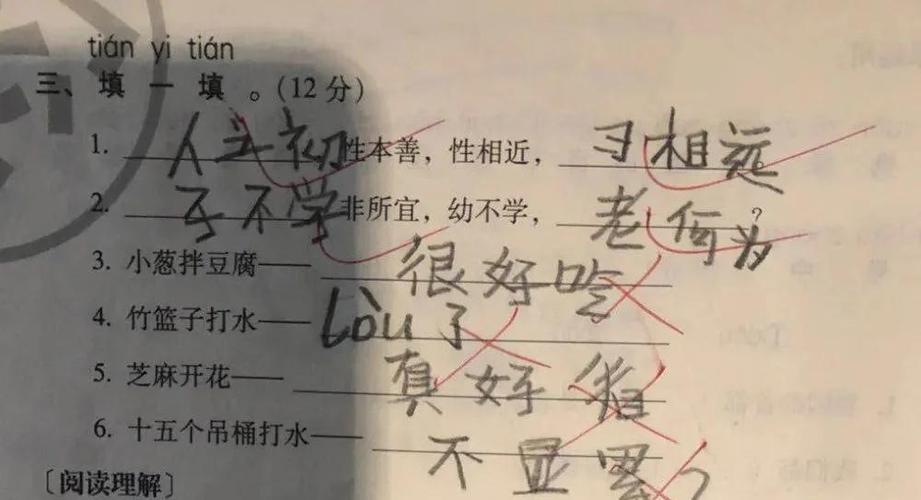 tián yi tián
三、填一填。(12分)
1. 人之初性本善，性相近，习相远。
2. 子不学非所宜，幼不学，老何为？
3. 小葱拌豆腐——很好吃
4. 竹篮子打水——lòu了
5. 芝麻开花——真好看
6. 十五个吊桶打水——不显累？
〔阅读理解〕